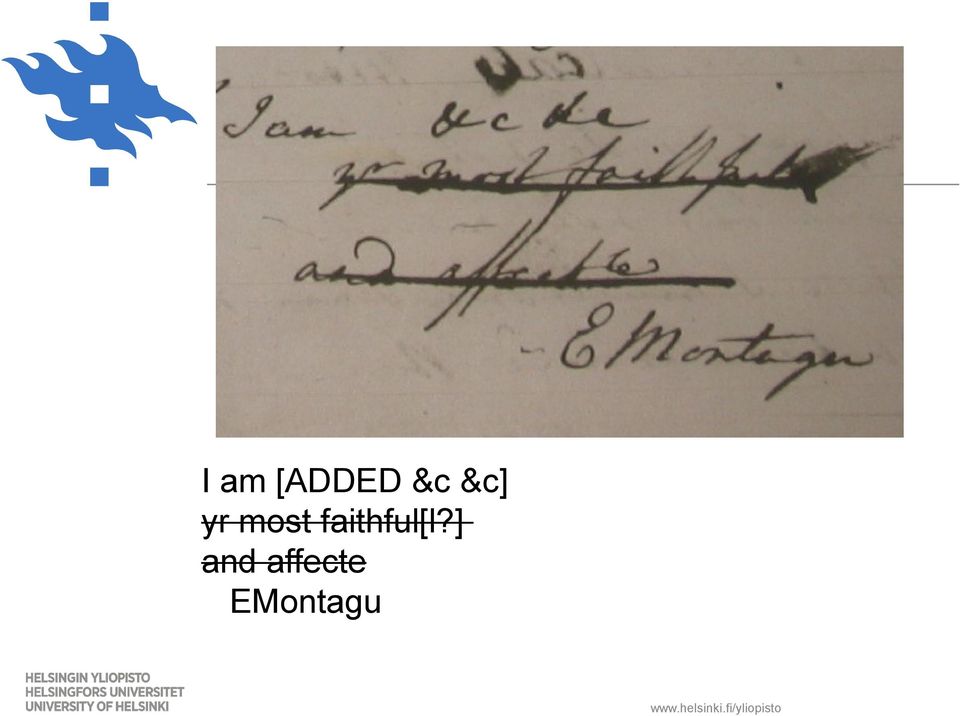 I am &c &c
yr most faithful
and affecte
EMontagu
I am [ADDED &c &c]
yr most faithful[l?]
and affecte
EMontagu
HELSINGIN YLIOPISTO
HELSINGFORS UNIVERSITET
UNIVERSITY OF HELSINKI
www.helsinki.fi/yliopisto